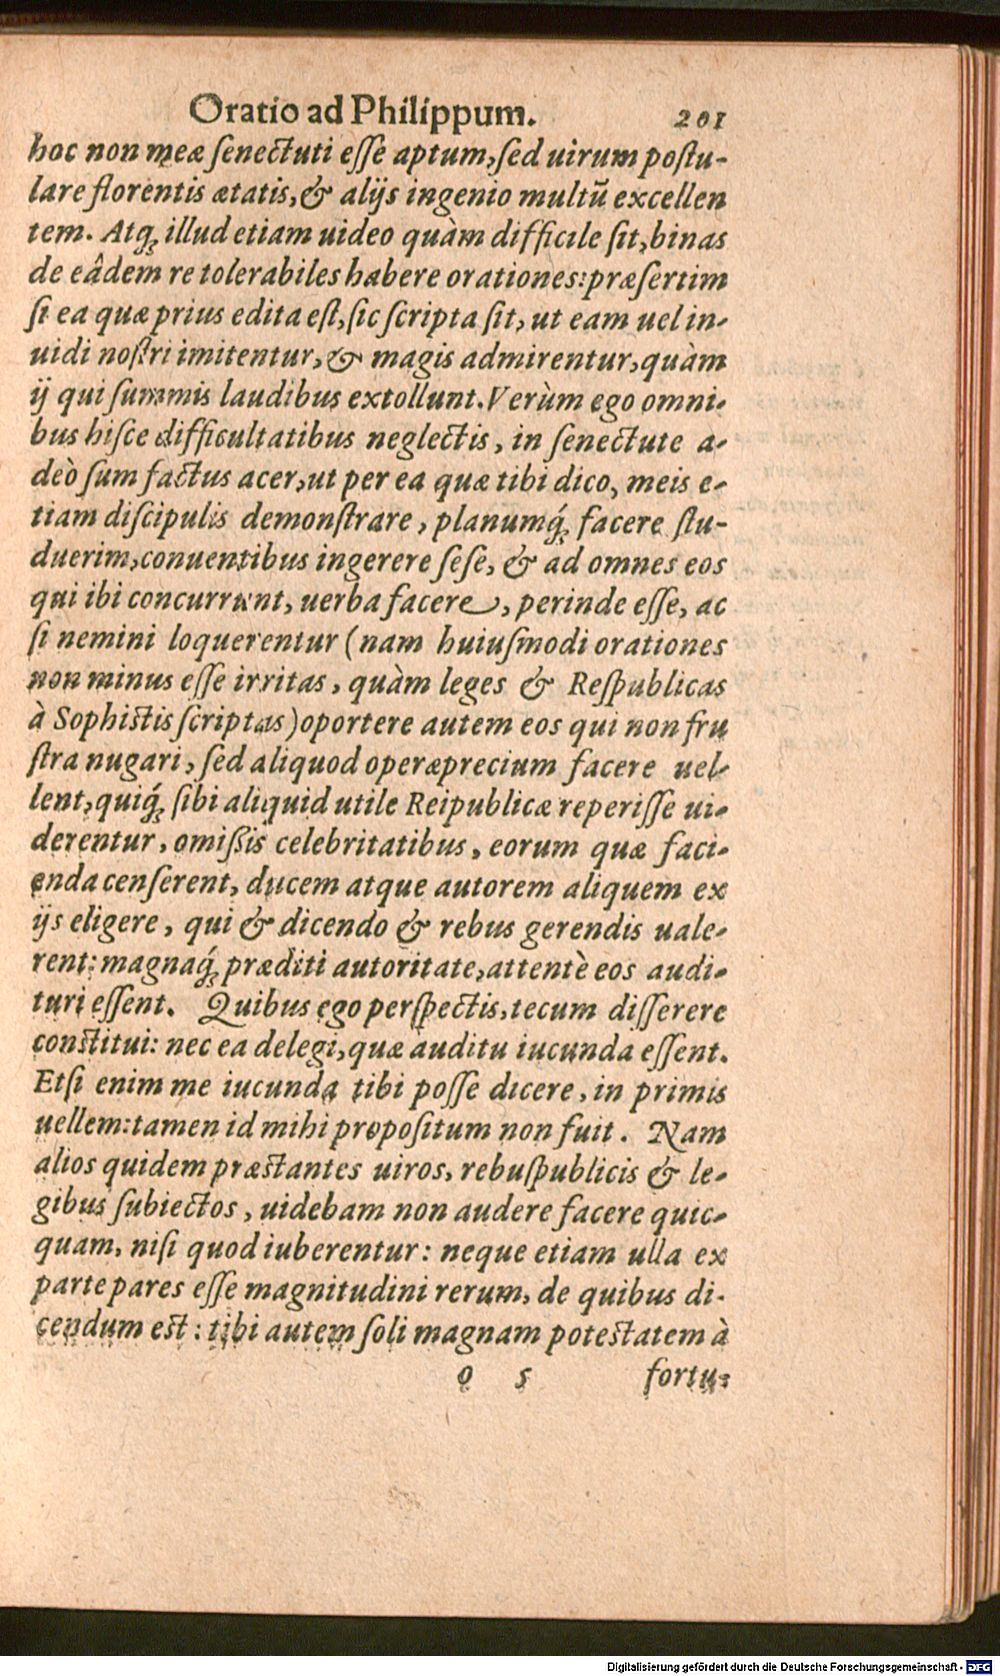 Oratio ad Philippum. 201
hoc non meæ ſenectuti eſſe aptum, ſed uirum poſtu-
lare florentis ætatis, & alijs ingenio multũ excellen
tem. Atq́; illud etiam uideo quàm difficile ſit, binas
de eâdem re tolerabiles habere orationes: præſertim
ſi ea quæ prius edita eſt, ſic ſcripta ſit, ut eam uel in-
uidi noſtri imitentur, & magis admirentur, quàm
ij qui ſummis laudibus extollunt. Verùm ego omni-
bus hiſce difficultatibus neglectis, in ſenectute a-
deò ſum factus acer, ut per ea quæ tibi dico, meis e-
tiam diſcipulis demonſtrare, planumq́; facere ſtu-
duerim, conuentibus ingerere ſeſe, & ad omnes eos
qui ibi concurrunt, uerba facere, perinde eſſe, ac
ſi nemini loquerentur (nam huiuſmodi orationes
non minus eſſe irritas, quàm leges & Reſpublicas
à Sophiſtis ſcriptas) oportere autem eos qui non fru
ſtra nugari, ſed aliquod operæprecium facere uel-
lent, quiq́; ſibi aliquid utile Reipublicæ reperiſſe ui-
derentur, omißis celebritatibus, eorum quæ faci-
enda cenſerent, ducem atque autorem aliquem ex
ijs eligere, qui & dicendo & rebus gerendis uale-
rent: magnaq́; præditi autoritate, attentè eos audi-
turi eſſent. Quibus ego perſpectis, tecum diſſerere
conſtitui: nec ea delegi, quæ auditu iucunda eſſent.
Etſi enim me iucunda tibi poſſe dicere, in primis
uellem: tamen id mihi propoſitum non fuit. Nam
alios quidem præſtantes uiros, rebuſpublicis & le-
gibus ſubiectos, uidebam non audere facere quic-
quam, niſi quod iuberentur: neque etiam ulla ex
parte pares eſſe magnitudini rerum, de quibus di-
cendum eſt: tibi autem ſoli magnam poteſtatem à
o 5 fortu-
Digitalisierung gefördert durch die Deutsche Forschungsgemeinschaft - DFG